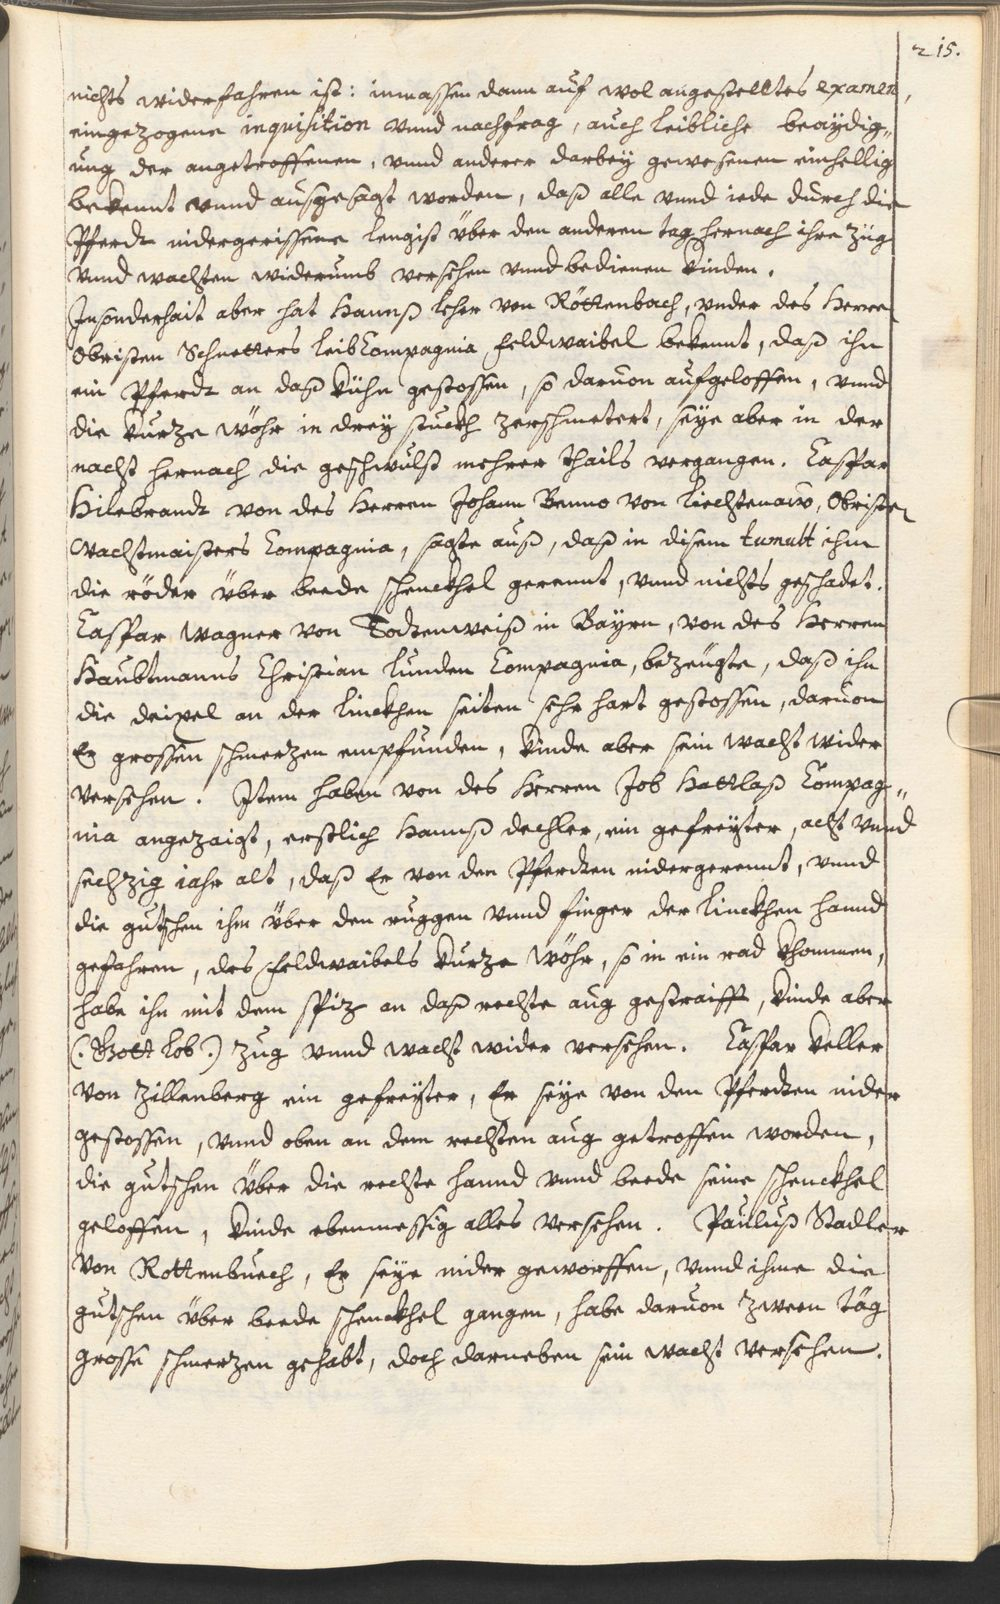 215.
nichts widerfahren ist: inmassen dann auf wol angestelltes examen,
eingezogene inquisition vnnd nachfrag, auch leibliche beaÿdig„
ung der angetroffenen, vnnd anderer darbeÿ gewesenen einhellig
bekennt vnnd ausgesagt worden, daß alle vnnd iede durch die
Pferdt nidergerissene lengist über den anderen tag hernach ihre züg
vnnd wachten widerumb versehen vnnd bedienen künden.
Insonderhait aber hat Hannß Leher von Röttenbach, vnder des Herren
Obristen Schnetters leib Compagnia feldwaibel bekennt, daß ihn
ein Pferdt an daß kühn gestossen, so daruon aufgeloffen, vnnd
die kurze wöhr in dreÿ stuckh zerschmetert, seÿe aber in der
nacht hernach die geschwulst mehrer thails vergangen. Caspar
Hilebrandt von des Herren Johann Benno von Liechtenaw, Obristen
Wachtmaisters Compagnia, sagte auß, daß in disem tumult ihm
die röder über beede schenckhel gerennt, vnnd nichts geschadet.
Caspar Wagner von Todtenweiß in Baÿrn, von des Herren
Haubtmanns Christian Lunden Compagnia, bezeügte, daß ihn
die deixel an der linckhen seiten sehr hart gestossen, daruon
Er grossen schmertzen empfunden, künde aber sein wacht wider
versehen. Item haben von des Herren Job Hattlaß Compag„
nia angezaigt, erstlich Hannß Dechler, ein gefreÿter, acht vnnd
sechzig iahr alt, daß Er von den Pferdten nidergerennt, vnnd
die gutschen ihm über den ruggen vnnd finger der linckhen hannd
gefahren, des feldwaibels kurze wöhr, so in ein rad khommen,
habe ihn mit dem spiz an daß rechte aug gestraifft, künde aber
(: Gott lob :) zug vnnd wacht wider versehen. Caspar Keller
von Zillenberg ein gefreÿter, Er seÿe von den Pferdten nider
gestossen, vnnd oben an dem rechten aug getroffen worden,
die gutschen über die rechte hannd vnnd beede seine schenckhel
geloffen, künde ebenmessig alles versehen. Pauluß Stadler
von Rottenbuech, Er seÿe nider geworffen, vnnd ihme die
gutschen über beede schenckhel gangen, habe daruon zween täg
grosse schmertzen gehabt, doch darneben sein wacht versehen.